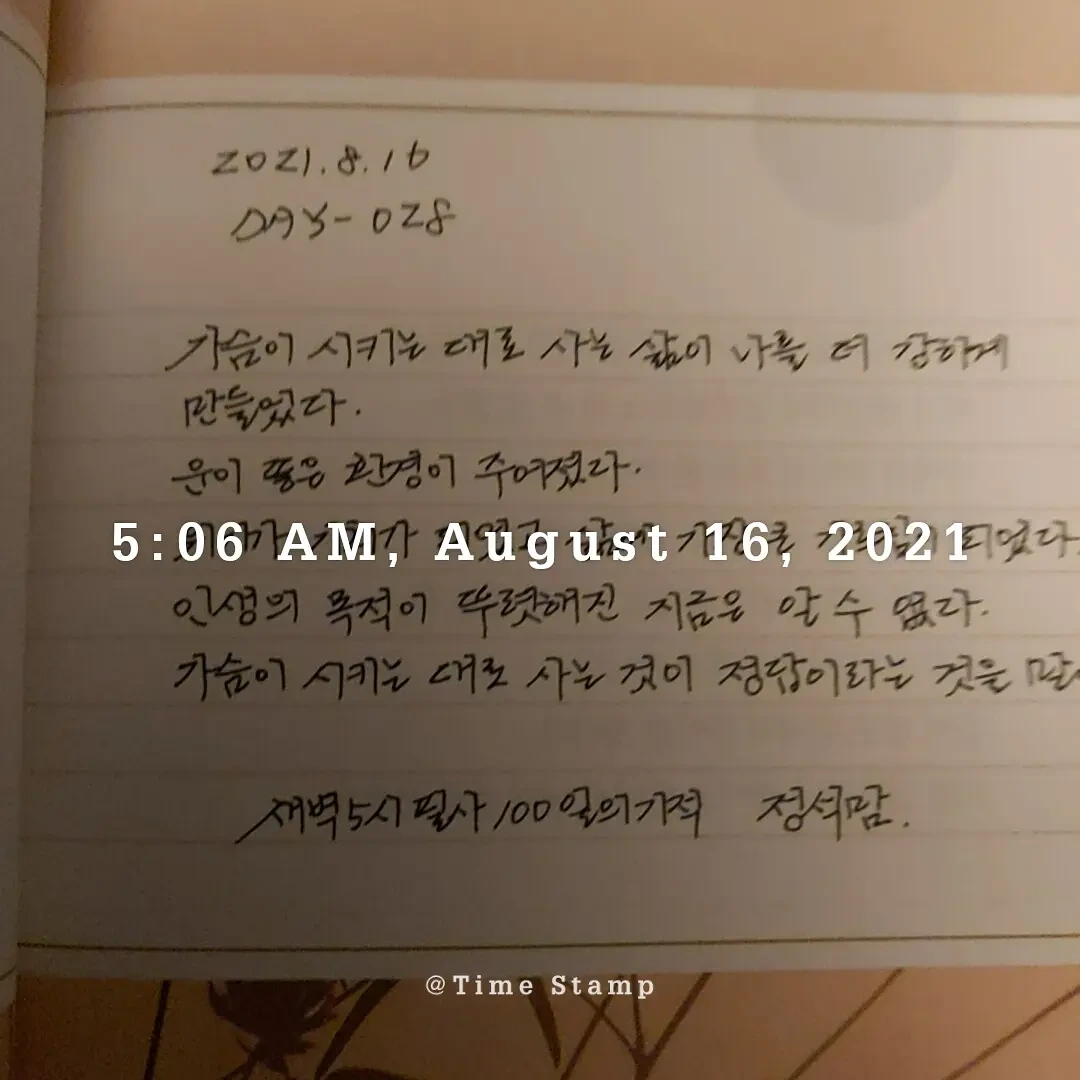 2021.8.16
DAY-028
가슴이 시키는 대로 사는 삶이 나를 더 강하게
만들었다.
운이 좋은 환경이 주어졌다.
되었다.
5:06 AM, August 16, 2021
인생의 목적이 뚜렷해진 지금은 알 수 있다.
가슴이 시키는 대로 사는 것이 정답이라는 것을
새벽5시 필사 100일의기적 정석맘.
@Time Stamp